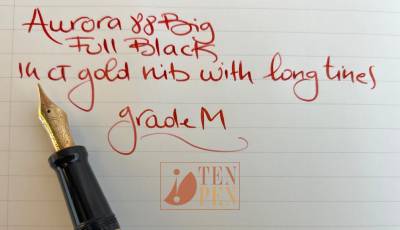 Aurora 88 Big
Full Black
14 CT gold nib with long tines
grade M
TEN
PEN